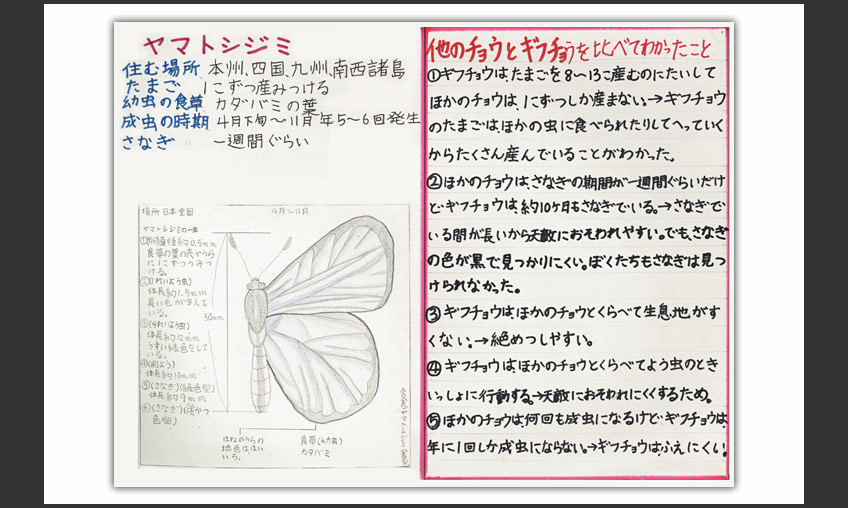 ヤマトシジミ
住む場所 本州、四国、九州、南西諸島
たまご 1こずつ産みつける
幼虫の食草 カタバミの葉
成虫の時期 4月下旬〜11月 年5〜6回発生
さなぎ 一週間ぐらい
場所 日本全国 4月〜11月
ヤマトシジミの一生
直径約0.5mm
食草の葉の表やうら
に1こずつうみつ
ける。
体長約1.5mm
長い毛がはえて
いる。
体長約12mm
うすい緑色をして
いる。
体長約10mm
⑤(さなぎ)(緑色型)
体長約9mm
⑥(さなぎ)(褐かっ
色型)
30mm
はねのうらの
地色ははい
いろ。
食草(幼虫)
カタバミ
他のチョウとギフチョウを比べてわかったこと
①ギフチョウはたまごを8〜13こ産むのにたいして
ほかのチョウは、1こずつしか産まない。→ギフチョウ
のたまごは、ほかの虫に食べられたりしてへっていく
からたくさん産んでいることがわかった。
②ほかのチョウは、さなぎの期間が一週間ぐらいだけ
ど、ギフチョウは、約10ヶ月もさなぎでいる。→さなぎで
いる間が長いから天敵におそわれやすい。でも、さなぎ
の色が黒で見つかりにくい。ぼくたちもさなぎは見つ
けられなかった。
③ギフチョウはほかのチョウとくらべて生息地がす
くない。→絶めつしやすい。
④ギフチョウは、ほかのチョウとくらべてよう虫のとき
いっしょに行動する。→天敵におそわれにくくするため。
⑤ほかのチョウは何回も成虫になるけど、ギフチョウは、
年に1回しか成虫にならない。→ギフチョウは、ふえにくい。